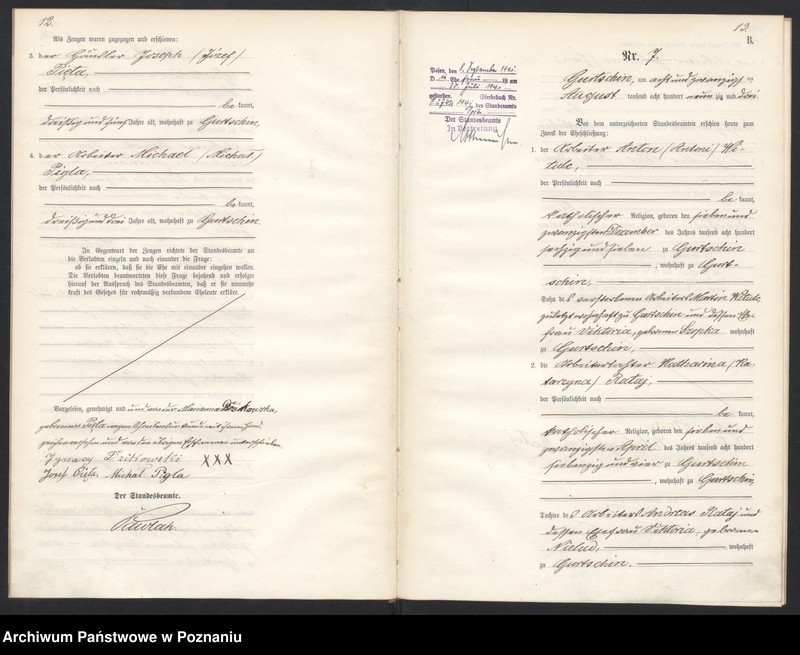 12.
Als Zeugen waren zugezogen und erschienen:
3. der Häusler Joseph /Józef/
Pigla,
der Persönlichkeit nach
be kannt,
dreißig und fünf Jahre alt, wohnhaft zu Gurtschin,
4. der Arbeiter Michael /Michał/
Pigla,
der Persönlichkeit nach
be kannt,
dreißig und drei Jahre alt, wohnhaft zu Gurtschin.
In Gegenwart der Zeugen richtete der Standesbeamte an
die Verlobten einzeln und nach einander die Frage:
ob sie erklären, daß sie die Ehe mit einander eingehen wollen.
Die Verlobten beantworteten diese Frage bejahend und erfolgte
hierauf der Ausspruch des Standesbeamten, daß er sie nunmehr
kraft des Gesetzes für rechtmäßig verbundene Eheleute erkläre.
Vorgelesen, genehmigt und und von der Marianna
geborenen Pigla wegen Schreibens
und von den übrigen Erschienenen unterschrieben
Ignacy XXX
Josef Pigla, Michał Pigla
Der Standesbeamte.
13.
B.
Nr. 7.
Gurtschin, am acht und zwanzigsten
August tausend acht hundert neunzig und drei
Vor dem unterzeichneten Standesbeamten erschien heute zum
Zweck der Eheschließung:
1. der Arbeiter Anton /Antoni/ Wi-
tula,
der Persönlichkeit nach
be kannt,
katholischer Religion, geboren den sieben und
zwanzigsten Dezember des Jahres tausend acht hundert
sechzig und sieben zu Gurtschin
, wohnhaft zu Gurt-
schin,
Sohn des verstorbenen Arbeiters Martin Witula,
zuletzt wohnhaft zu Gurtschin und dessen Ehe-
frau Viktoria, geborenen Szopka wohnhaft
zu Gurtschin,
2. die Arbeitertochter Katharina /Ka-
tarzyna/ Rataj,
der Persönlichkeit nach
be kannt,
katholischer Religion, geboren den sieben und
zwanzigsten April des Jahres tausend acht hundert
siebenzig und vier zu Gurtschin
, wohnhaft zu Gurtschin,
Tochter des Arbeiters Andreas Rataj und
dessen Ehefrau Viktoria, geborenen
wohnhaft
zu Gurtschin.
Posen, den
gestorben. Sterbebuch Nr.
des Standesamts
Der Standesbeamte
In Vertretung
Archiwum Państwowe w Poznaniu